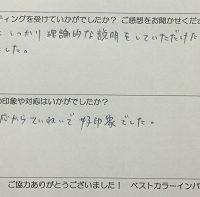 ティングを受けていかがでしたか? ご感想をお聞かせくださ
しっかり理論的な説明をしていただけた
した。
の印象や対応はいかがでしたか?
だからていねいで好印象でした。
ご協力ありがとうございました! ベストカラーインパ